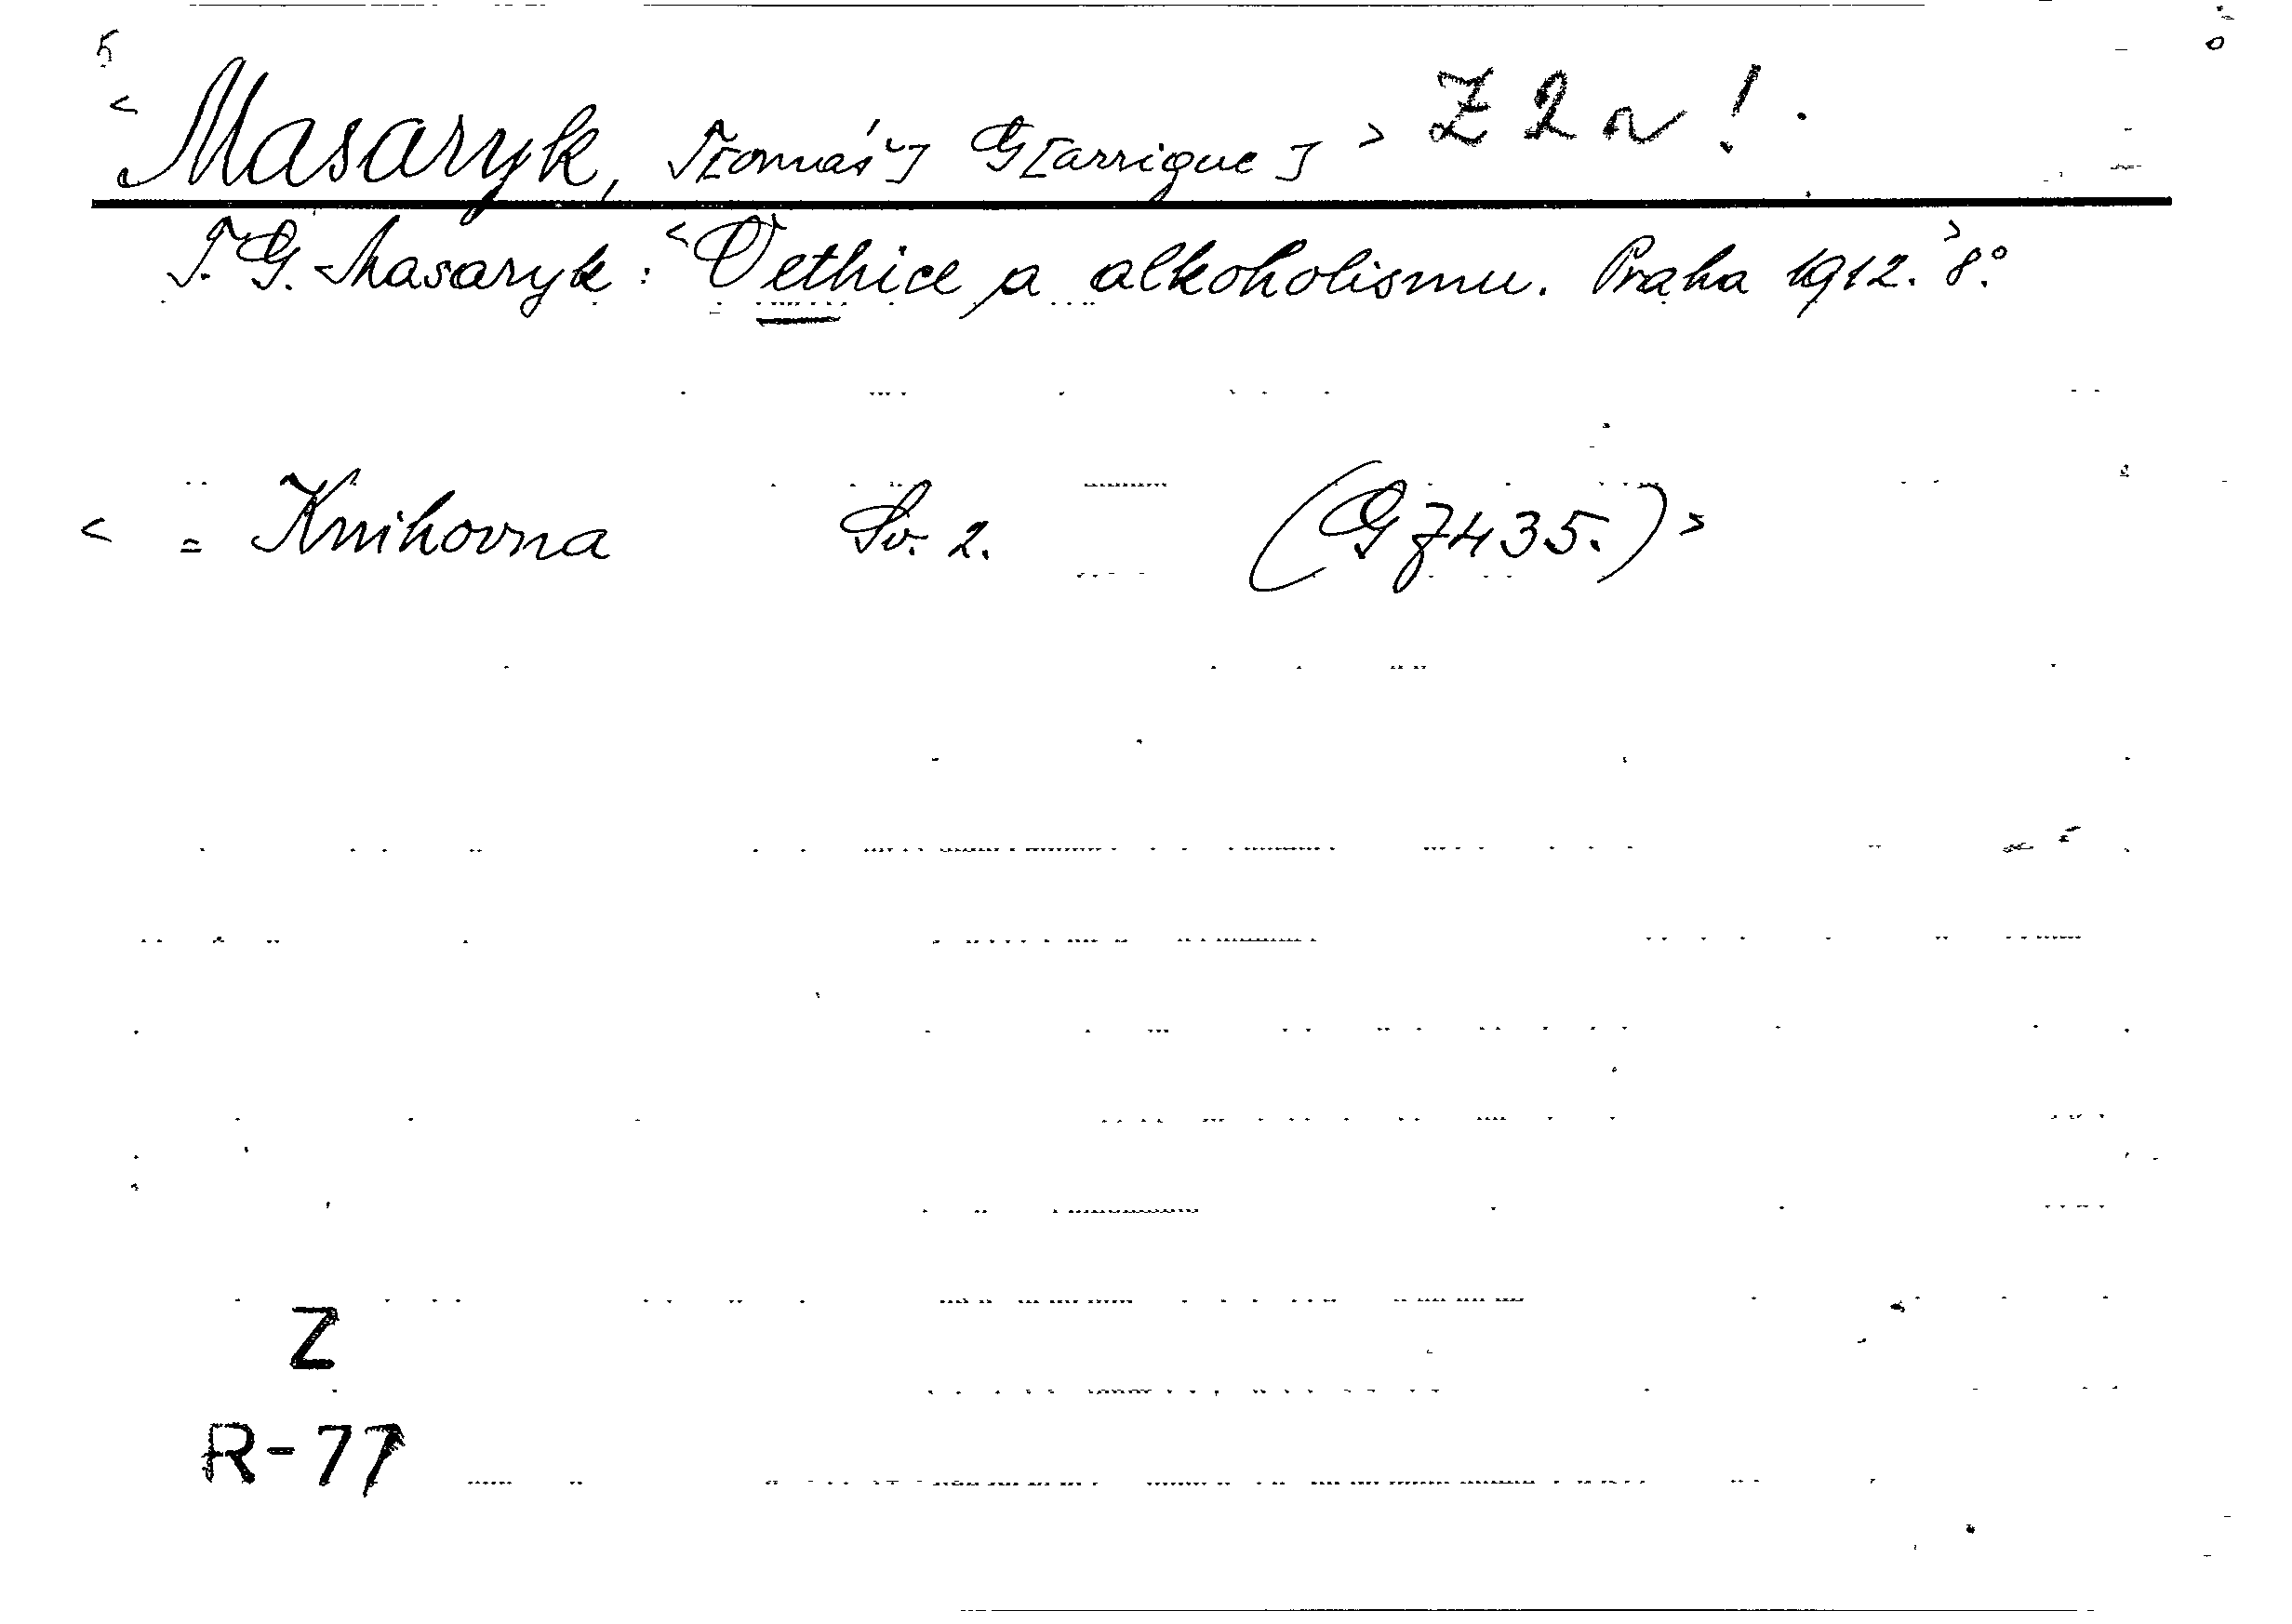 < Masaryk, T[omáš] G[arrigue] > Z 2 n !
T. G. Masaryk: <O ethice a alkoholismu. Praha 1912.> 8°.
< = Knihovna Sv. 2. (G 7435.) >
Z
R-77